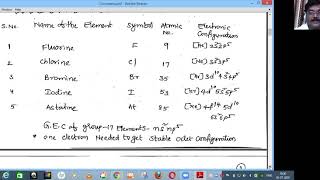 S.No. Name of the Element Symbol Atomic No. Electronic Configuration
1 Fluorine F 9 [He] 2s² 2p⁵
2 Chlorine Cl 17 [Ne] 3s² 3p⁵
3 Bromine Br 35 [Ar] 3d¹⁰ 4s² 4p⁵
4 Iodine I 53 [Kr] 4d¹⁰ 5s² 5p⁵
5 Astatine At 85 [Xe] 4f¹⁴ 5d¹⁰
6s² 6p⁵
G.E.C of group-17 Elements - ns² np⁵
one electron Needed to get stable octet configuration